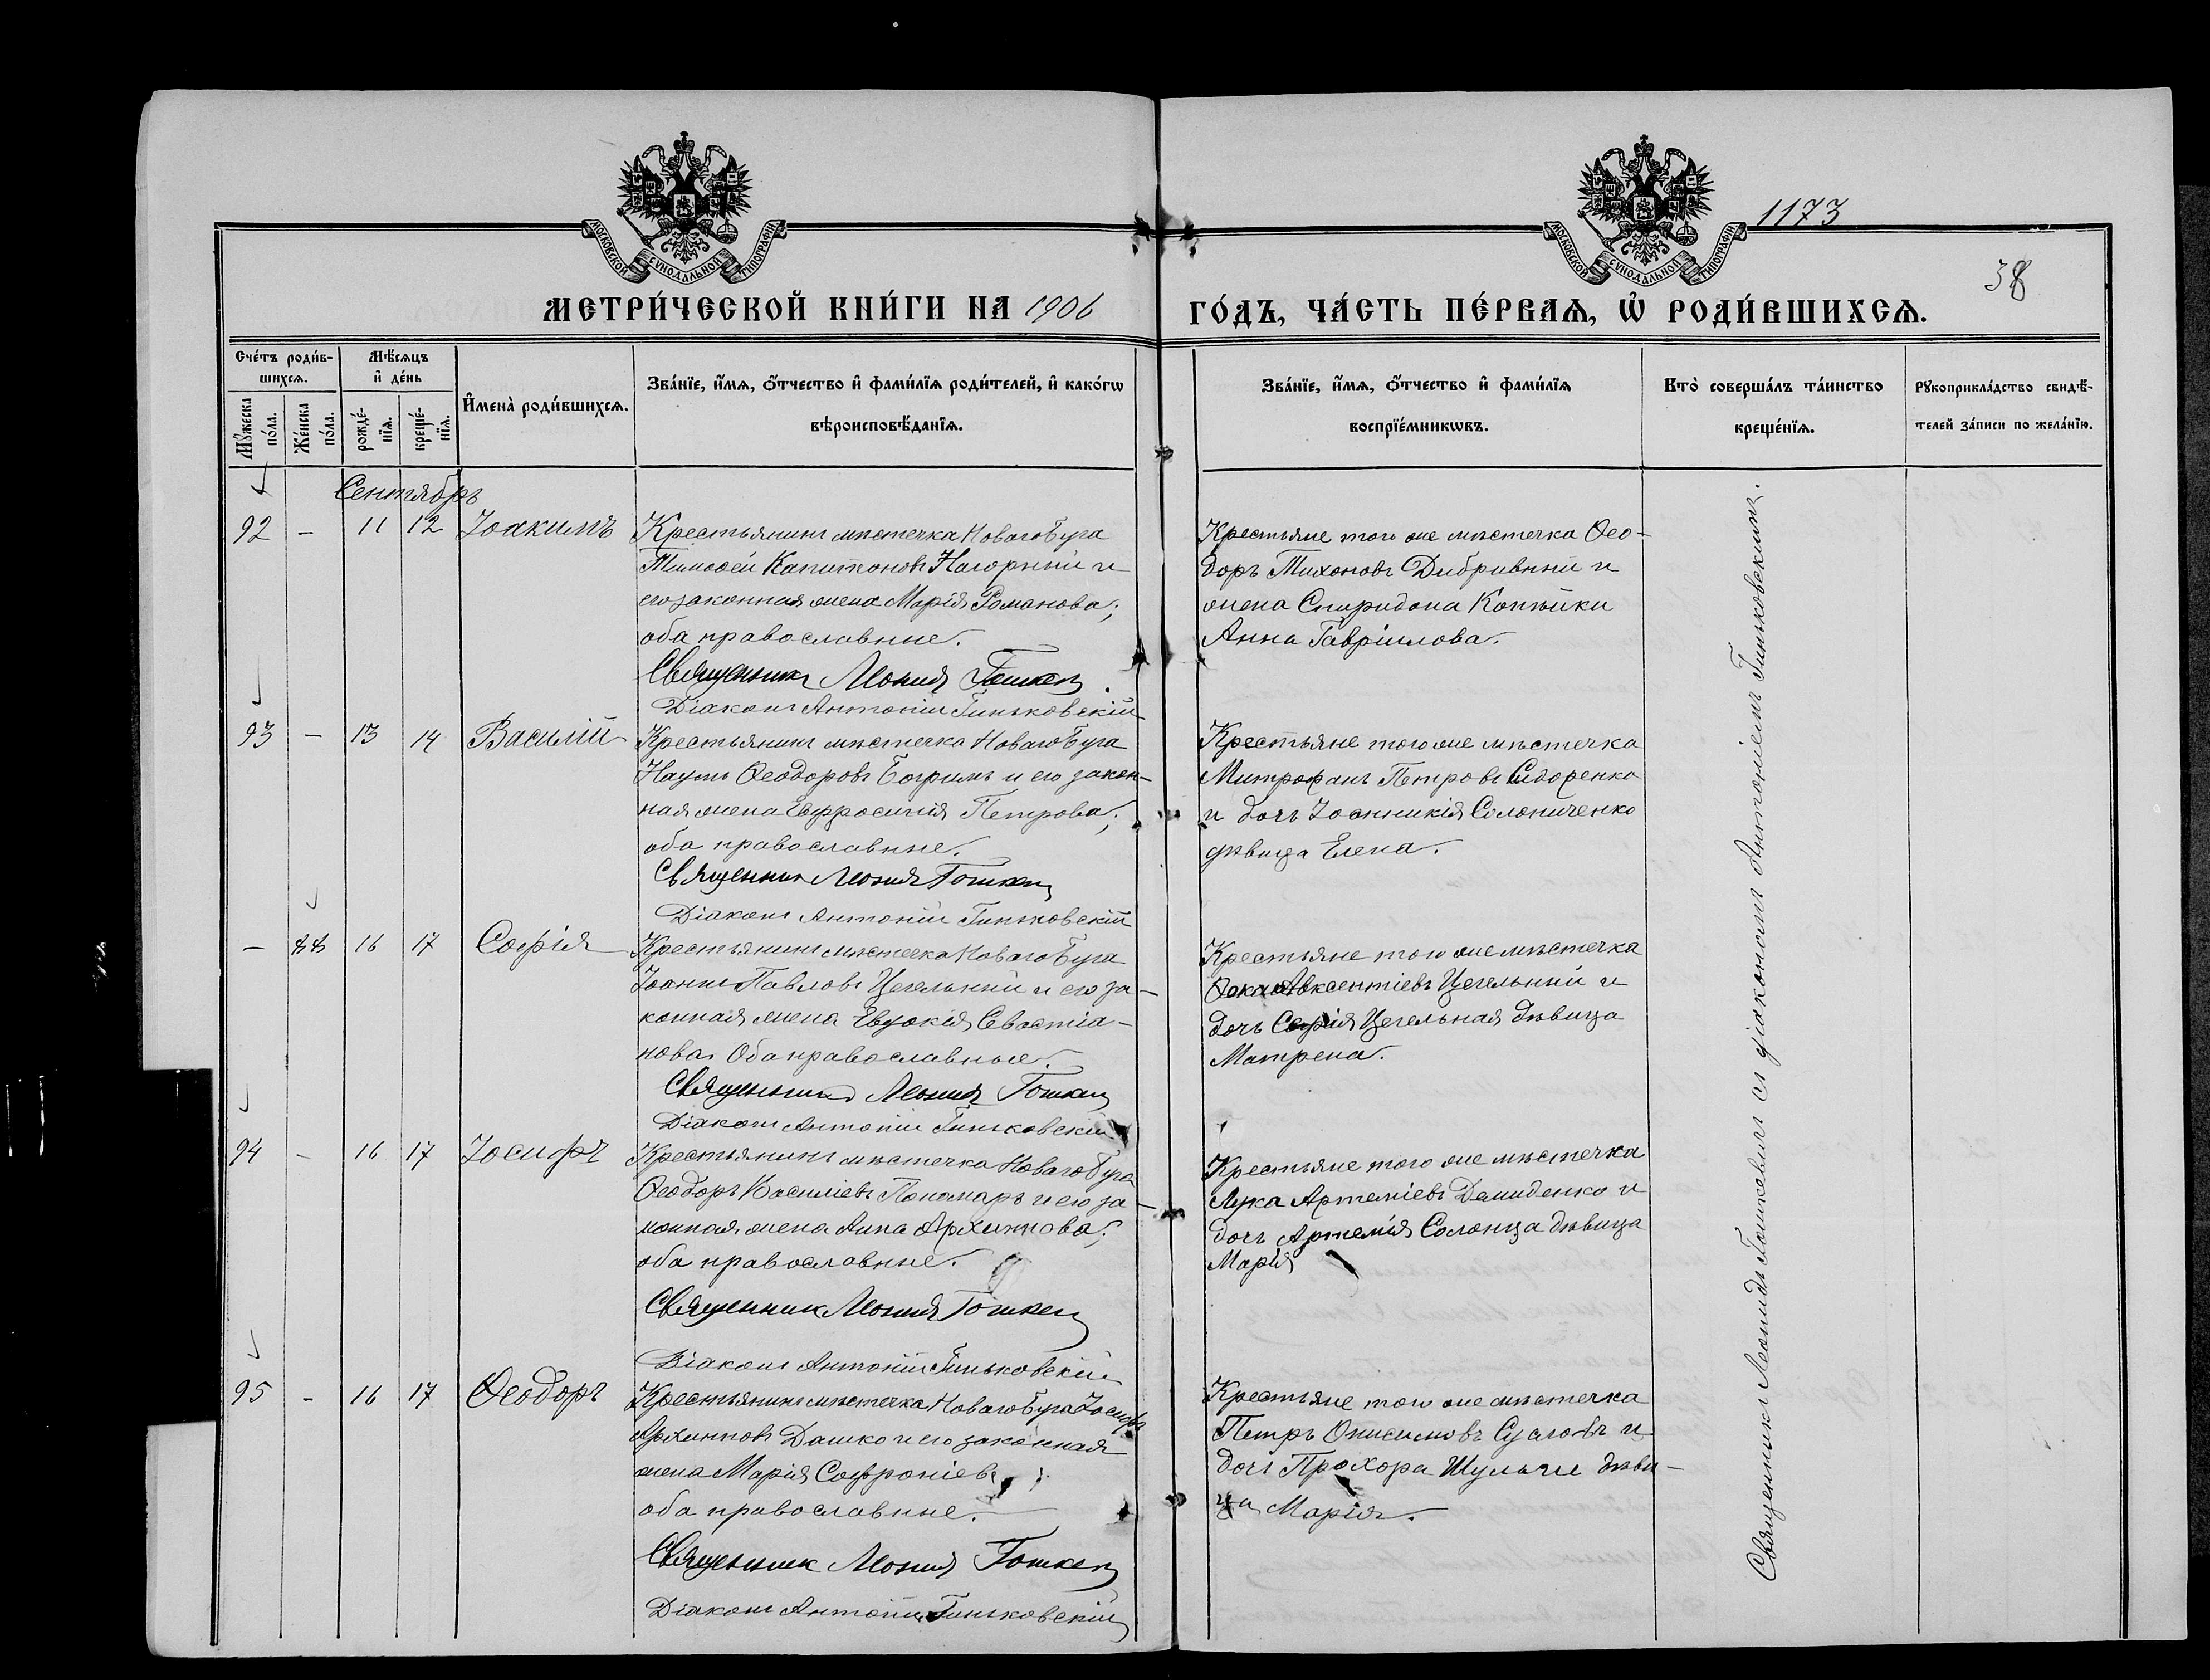 МОСКОВСКОЙ СѴНОДАЛЬНОЙ ТИПОГРАФІИ
МОСКОВСКОЙ СѴНОДАЛЬНОЙ ТИПОГРАФІИ
1173
38
МЕТРИ́ЧЕСКОЙ КНИ́ГИ НА 1906
ГО́ДЪ, ЧА́СТЬ ПЕ́РВАѦ, Ѡ҆ РОДИ́ВШИХСѦ.
Сче́тъ роди́в-
шихсѧ.
Мѣ́сѧцъ
и҆ де́нь
Мꙋ́жеска по́ла.
Же́нска по́ла.
рожде́-
нїѧ.
креще́-
нїѧ.
И҆мена̀ роди́вшихсѧ.
Зва́нїе, и҆́мѧ, ѻ҆́тчество и҆ фами́лїѧ роди́телей, и҆ како́гѡ
вѣроисповѣ́данїѧ.
Зва́нїе, и҆́мѧ, ѻ҆́тчество и҆ фами́лїѧ
воспрїе́мникѡвъ.
Кто̀ соверша́лъ та́инство
креще́нїѧ.
Рꙋкоприкла́дство свидѣ́-
телей за́писи по жела́нїю.
Сентябрь
92 - 11 12 Іоакимъ
Крестьянинъ мѣстечка Новаго Буга
Тимоѳей Капитоновъ Нагорный и
его законная жена Марія Романова;
оба православные.
Священникъ Леонидъ Гошкевичъ
Діаконъ Антоній Гиньковскій
Крестьяне того же мѣстечка Ѳео-
доръ Тихоновъ Дибривный и
жена Спиридона Копѣйки
Анна Гавріилова.
93 - 13 14 Василій
Крестьянинъ мѣстечка Новаго Буга
Наумъ Ѳеодоровъ Богримъ и его закон-
ная жена Евфросинія Петрова;
оба православные.
Священникъ Леонидъ Гошкевичъ
Діаконъ Антоній Гиньковскій
Крестьяне того же мѣстечка
Митрофанъ Петровъ Сидоренко
и дочь Іоанникія Солониченко
дѣвица Елена.
- 88 16 17 Софія
Крестьянинъ мѣстечка Новаго Буга
Іоаннъ Павловъ Цегельный и его за-
конная жена Евдокія Севастіа-
нова. Оба православные.
Священникъ Леонидъ Гошкевичъ
Діаконъ Антоній Гиньковскій
Крестьяне того же мѣстечка
Ѳока Авксентіевъ Цегельный и
дочь Сергія Цегельная дѣвица
Матрена.
94 - 16 17 Іосифъ
Крестьянинъ мѣстечка Новаго Буга
Ѳеодоръ Василіевъ Пономарь и его за-
конная жена Анна Архиппова;
оба православные.
Священникъ Леонидъ Гошкевичъ
Діаконъ Антоній Гиньковскій
Крестьяне того же мѣстечка
Лука Артеміевъ Демиденко и
дочь Артемія Солонца дѣвица
Марія
95 - 16 17 Ѳеодоръ
Крестьянинъ мѣстечка Новаго Буга Іосифъ
Архипповъ Дашко и его законная
жена Марія Софроніев
оба православные.
Священникъ Леонидъ Гошкевичъ
Діаконъ Антоній Гиньковскій
Крестьяне того же мѣстечка
Петръ Онисимовъ и
дочь Прохора Шульги дѣви-
ца Марія.
Священникъ Леонидъ Гошкевичъ съ діакономъ Антоніемъ Гиньковскимъ.